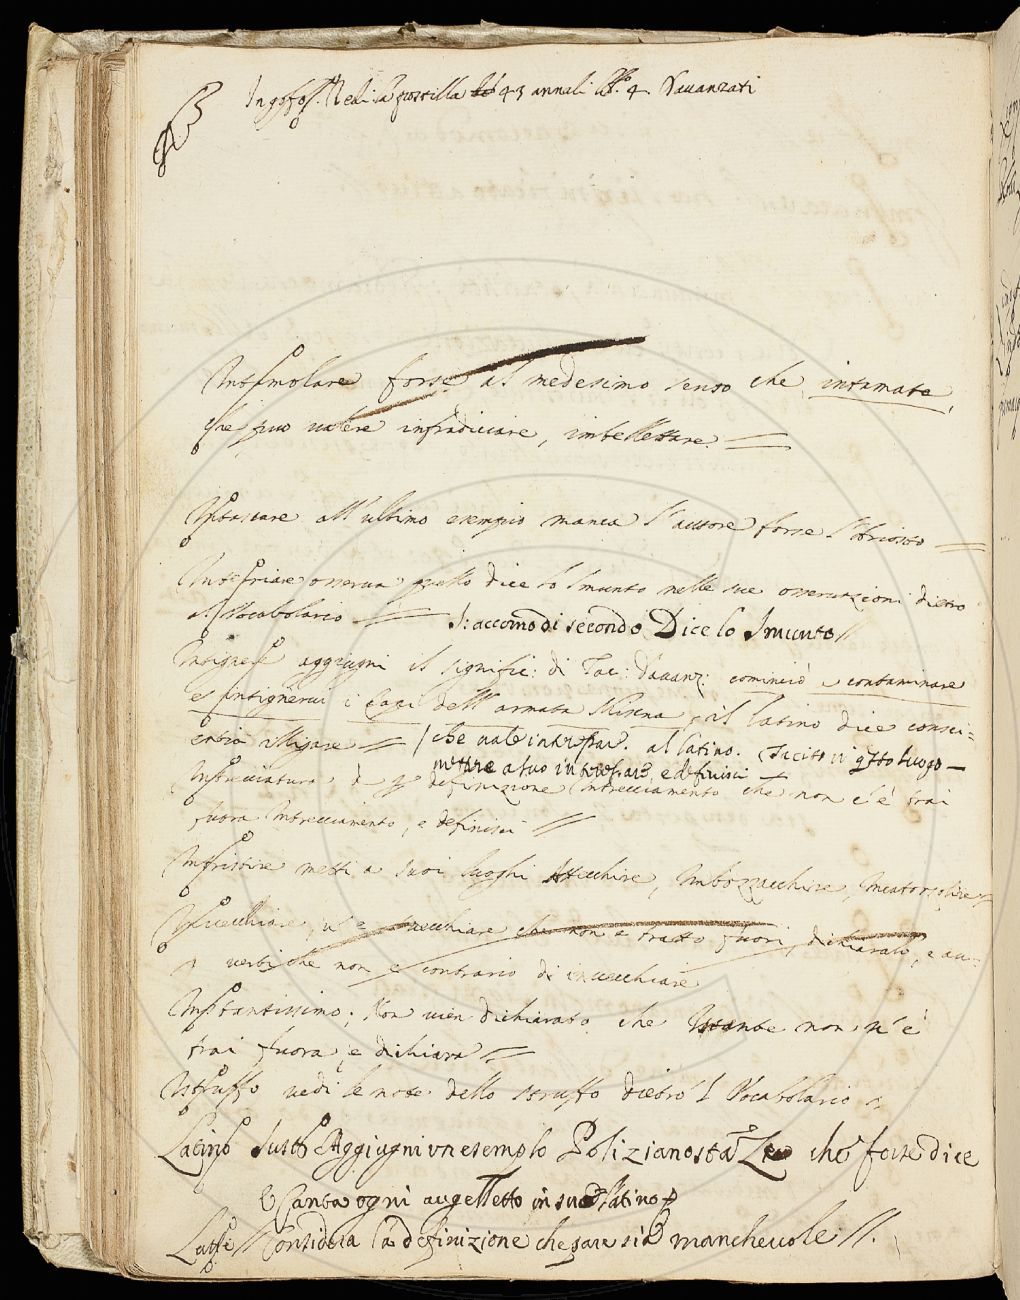 Ingoffo. Vedi la postilla 43 annali lib. 4 Davanzati
Intemolare forse al medesimo senso che intamate,
che puo valere infradiciare, imbellettare.
Intascare all'ultimo esempio manca l'autore forse l'Ariosto
Intefriare osserva quello dice lo Smunto nelle sue osservazioni dietro
al Vocabolario I: accomodi secondo Dice lo Smunto
Intignere aggiugni il signific: di Tac: Davanz: cominciò a contaminare
e intignervi i Capi dell'armata Misena, il latino dice consci=
entia illigare / che vale intrefar. al latino. Tacito in qsto luogo
mettere a suo
Intrecciatura è p definizione Intrecciamento che non c'è trai
fuora Intrecciamento, e definisci
Intristire metti a suoi luoghi Atecchire, Imbozzacchire, Incatorzolire
Invecchiare, v'e svecchiare che non è tratto fuori, dichiaralo, e av=
verti che non è contrario di invecchiare
Instantissimo; Non vien dichiarato che Istante non v'è
trai fuora, e dichiara
Intruffo vedi le note dello Struffo dietro 'l Vocabolario
Latino Sust. Aggiugni un esempio Poliziano sta che forse dice
E Canta ogni augelletto in suo latino
Latte Considera la definizione che pare sia manchevole.